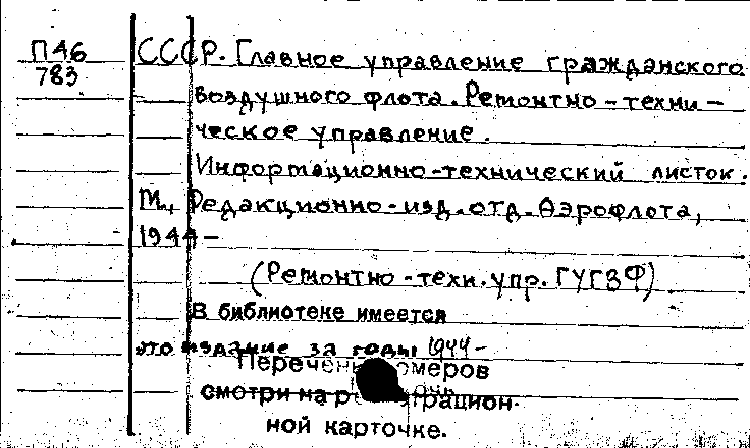 П46
783
СССР. Главное управление гражданского
воздушного флота. Ремонтно-техни-
ческое управление.
Информационно-технический листок.
М., Редакционно-изд. отд. Аэрофлота,
1944-
(Ремонтно-техн. упр. ГУГВФ)
В библиотеке имеется
это издание за годы 1944-
Перечень номеров
смотри на регистрацион-
ной карточке.